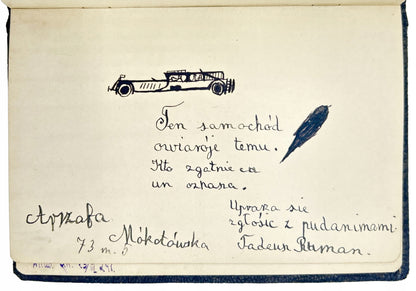 Ten samochód
owiaroje temu.
Kto zgatnie co
un oznana.
Uprana sie
zgłosić z pudanimami
Tadeun Ruman.
Mokotówska
73 m. 5